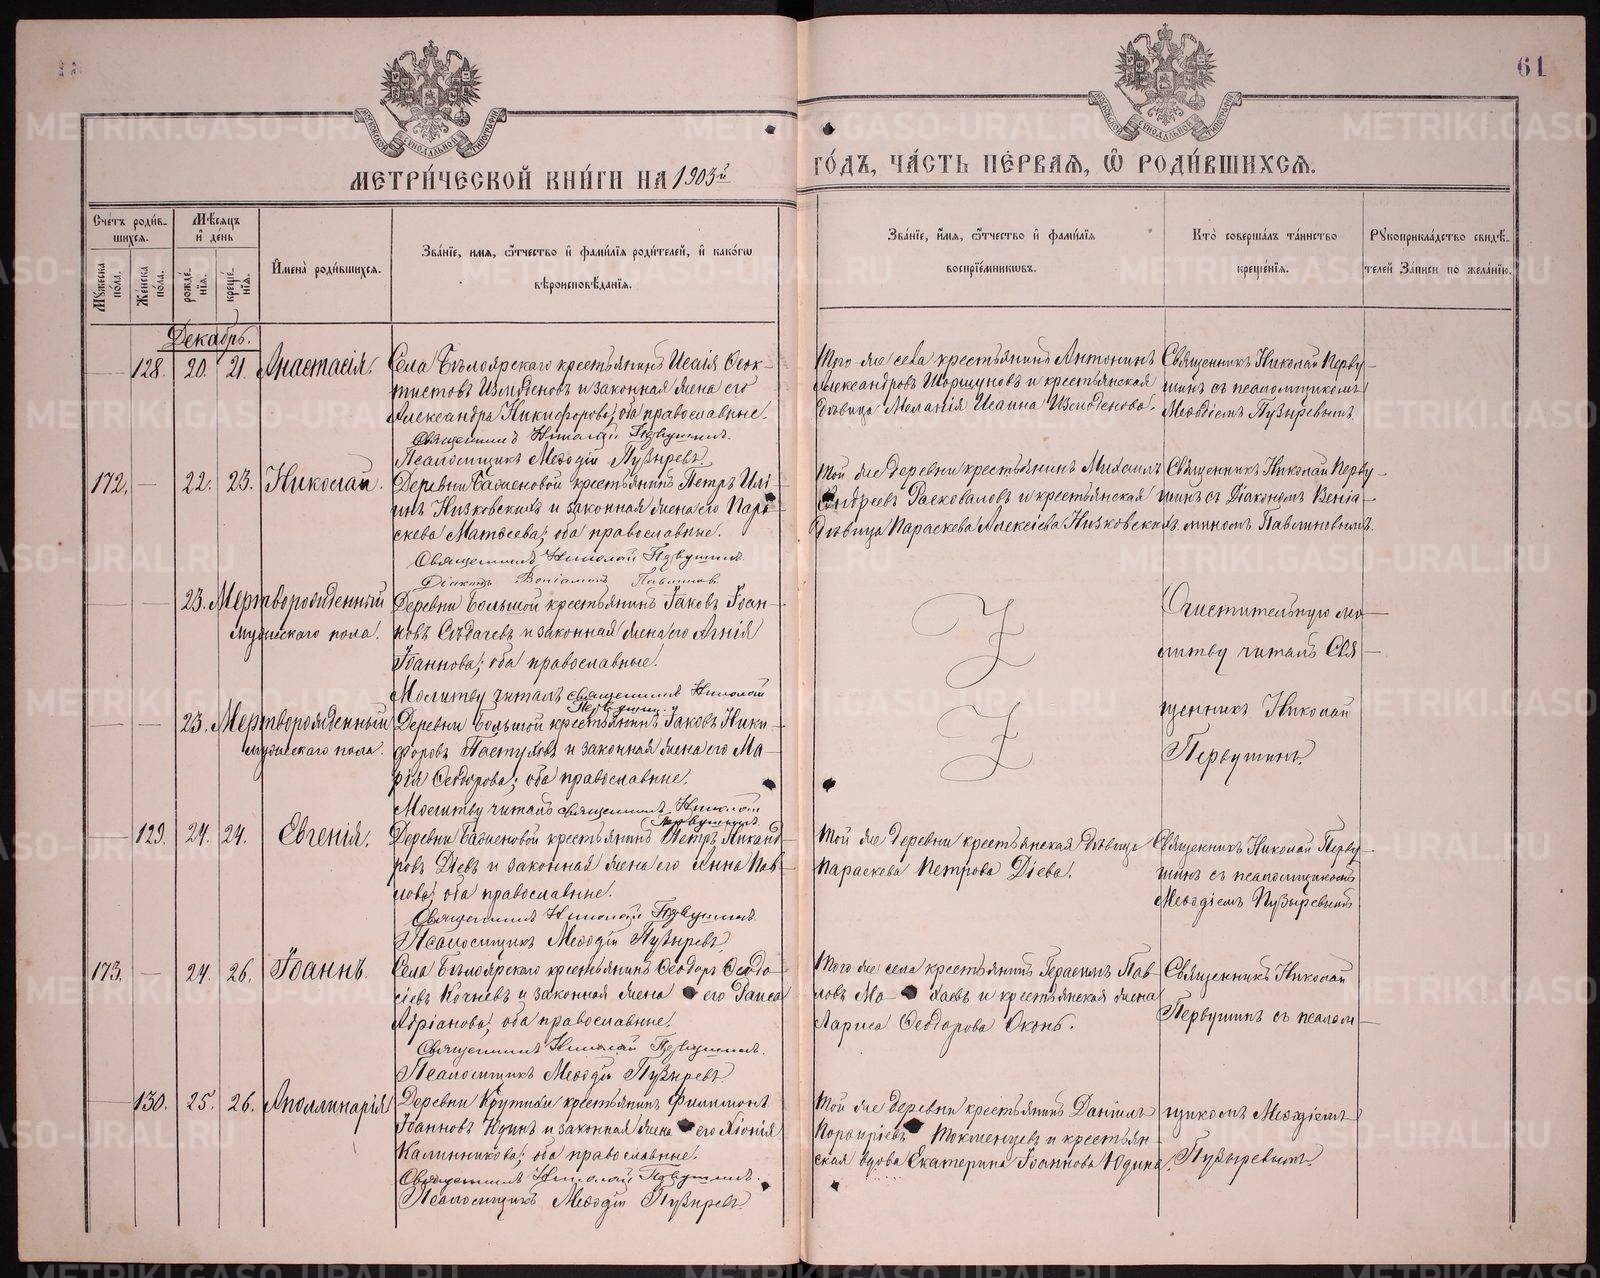 61
МЕТРИ́ЧЕСКОЙ КНИ́ГИ НА 1903й ГО́ДЪ, ЧА́СТЬ ПЕ́РВАЯ, Ѡ РОДИ́ВШИХСЯ.
Сче́тъ роди́в-
шихся.
Му́жеска по́ла.
Же́нска по́ла.
Мѣсяцъ
и де́нь
рожде́-
нія.
креще́-
нія.
Имена̀ роди́вшихся.
Зва́ніе, имя, о́тчество и фами́лія роди́телей, и како́гѡ
вѣроисповѣ́данія.
Зва́ніе, и́мя, о́тчество и фами́лія
воспрїе́мниковъ.
Кто̀ соверша́лъ та́инство
креще́нія.
Рукоприкла́дство свидѣ́-
телей За́писи по жела́нію.
Декабрь.
128. 20. 21. Анастасія.
Села Бѣлоярскаго крестьянинъ Исаія Ѳеок-
тистовъ Измоденовъ и законная жена его
Александра Никифорова; оба православные.
Священникъ Николай Первушинъ.
Псаломщикъ Меѳодій Пузыревъ
Того же села крестьянинъ Антонинъ
Александровъ Шоршуновъ и крестьянская
дѣвица Меланія Исаина Измоденова.
Священникъ Николай Перву-
шинъ съ псаломщикомъ
Меѳодіемъ Пузыревымъ
172. — 22. 23. Николай.
Деревни Баженовой крестьянинъ Петръ
Низковскихъ и законная жена его Пара-
скева Матѳеева; оба православные.
Священникъ Николай Первушинъ
Діаконъ Веніаминъ Павлиновъ
Той же деревни крестьянинъ Михаилъ
Андреевъ Расковаловъ и крестьянская
дѣвица Параскева Алексіева Низковскихъ
Священникъ Николай Перву-
шинъ съ Діакономъ Веніа-
миномъ Павлиновымъ.
23. Мертворожденный
мужескаго пола.
Деревни Большой крестьянинъ Іаковъ Іоан-
новъ и законная жена его Агнія
Іоаннова; оба православные.
Молитву читалъ священникъ Николай
Первушинъ.
Очистительную мо-
литву читалъ Свя-
щенникъ Николай
Первушинъ.
23. Мертворожденный
мужескаго пола.
Деревни Большой крестьянинъ Іаковъ Ники-
форовъ Пастуховъ и законная жена его Ма-
рія Ѳеодорова; оба православные.
Молитву читалъ священникъ Николай
Первушинъ.
129. 24. 24. Евгенія.
Деревни Баженовой крестьянинъ Петръ Никанд-
ровъ Діевъ и законная жена его Анна Пав-
лова; оба православные.
Священникъ Николай Первушинъ.
Псаломщикъ Меѳодій Пузыревъ
Той же деревни крестьянская дѣвица
Параскева Петрова Діева.
Священникъ Николай Перву-
шинъ съ псаломщикомъ
Меѳодіемъ Пузыревымъ
173. — 24. 26. Іоаннъ.
Села Бѣлоярскаго крестьянинъ Ѳеодоръ Ѳеодо-
сіевъ Кочневъ и законная жена его Раиса
Адріанова; оба православные.
Священникъ Николай Первушинъ.
Псаломщикъ Меѳодій Пузыревъ
Того же села крестьянинъ Герасимъ Пав-
ловъ и крестьянская жена
Лариса Ѳеодорова
Священникъ Николай
Первушинъ съ псалом-
130. 25. 26. Аполлинарія
Деревни Крутихи крестьянинъ Филимонъ
Іоанновъ и законная жена его Хіонія
Калинникова; оба православные.
Священникъ Николай Первушинъ.
Псаломщикъ Меѳодій Пузыревъ
Той же деревни крестьянинъ Даніилъ
Порфиріевъ Токменцевъ и крестьян-
ская вдова Екатерина Іоаннова Юдина.
щикомъ Меѳодіемъ
Пузыревымъ.
METRIKI.GASO-URAL.RU